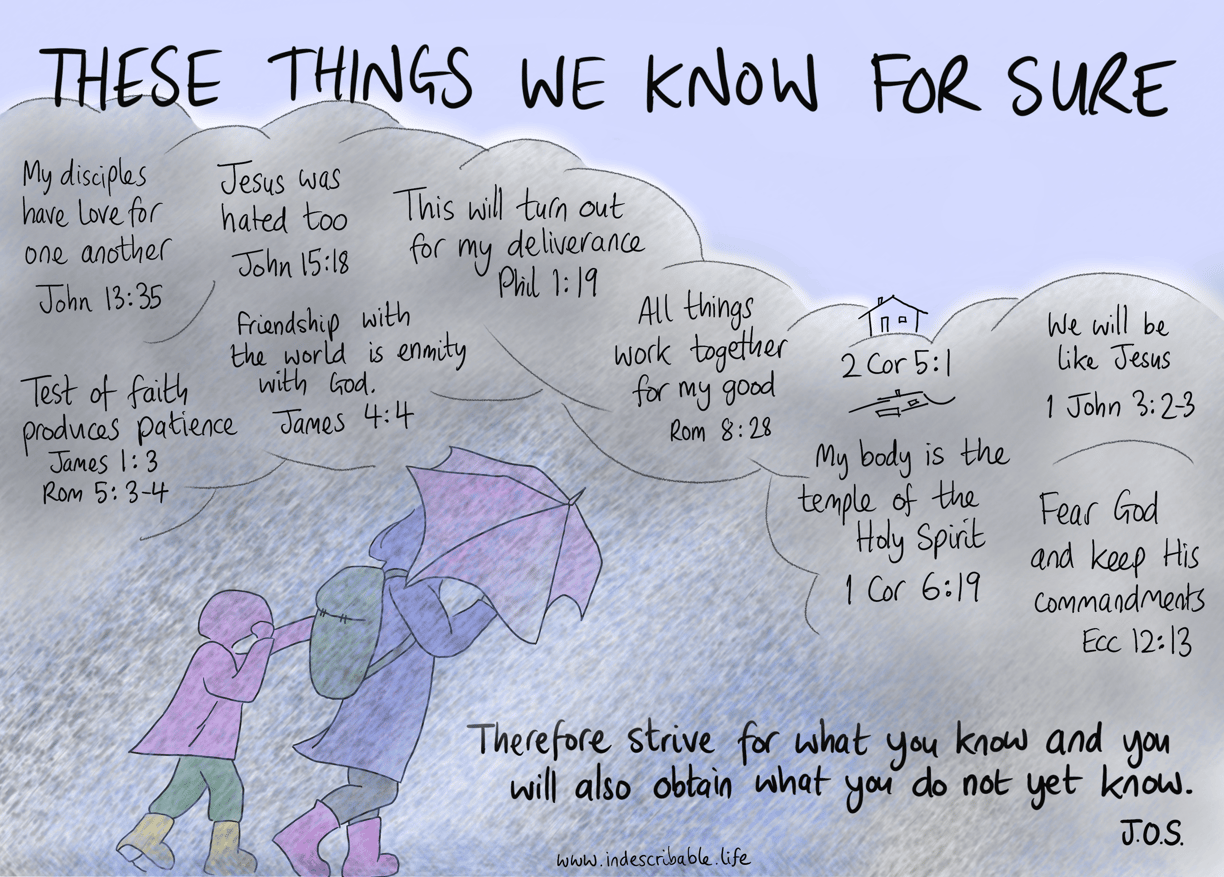 THESE THINGS WE KNOW FOR SURE
My disciples
have love for
one another
John 13:35
Jesus was
hated too
John 15:18
This will turn out
for my deliverance
Phil 1:19
Friendship with
the world is enmity
with God.
James 4:4
Test of faith
produces patience
James 1:3
Rom 5:3-4
All things
work together
for my good
Rom 8:28
2 Cor 5:1
We will be
like Jesus
1 John 3:2-3
My body is the
temple of the
Holy Spirit
1 Cor 6:19
Fear God
and keep His
commandments
Ecc 12:13
Therefore strive for what you know and you
will also obtain what you do not yet know.
J.O.S.
www.indescribable.life